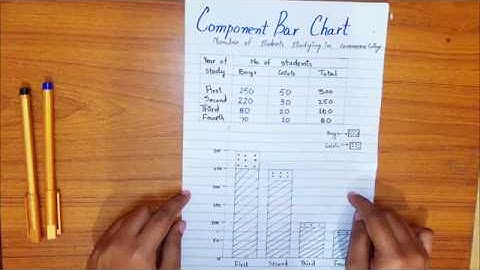 Component Bar Chart
Number of students studying in commerce College
Year of Study No of students
Boys Girls Total
First 250 50 300
Second 220 30 250
Third 80 20 100
Fourth 70 10 80
Boys →
Girls →
First Second Third